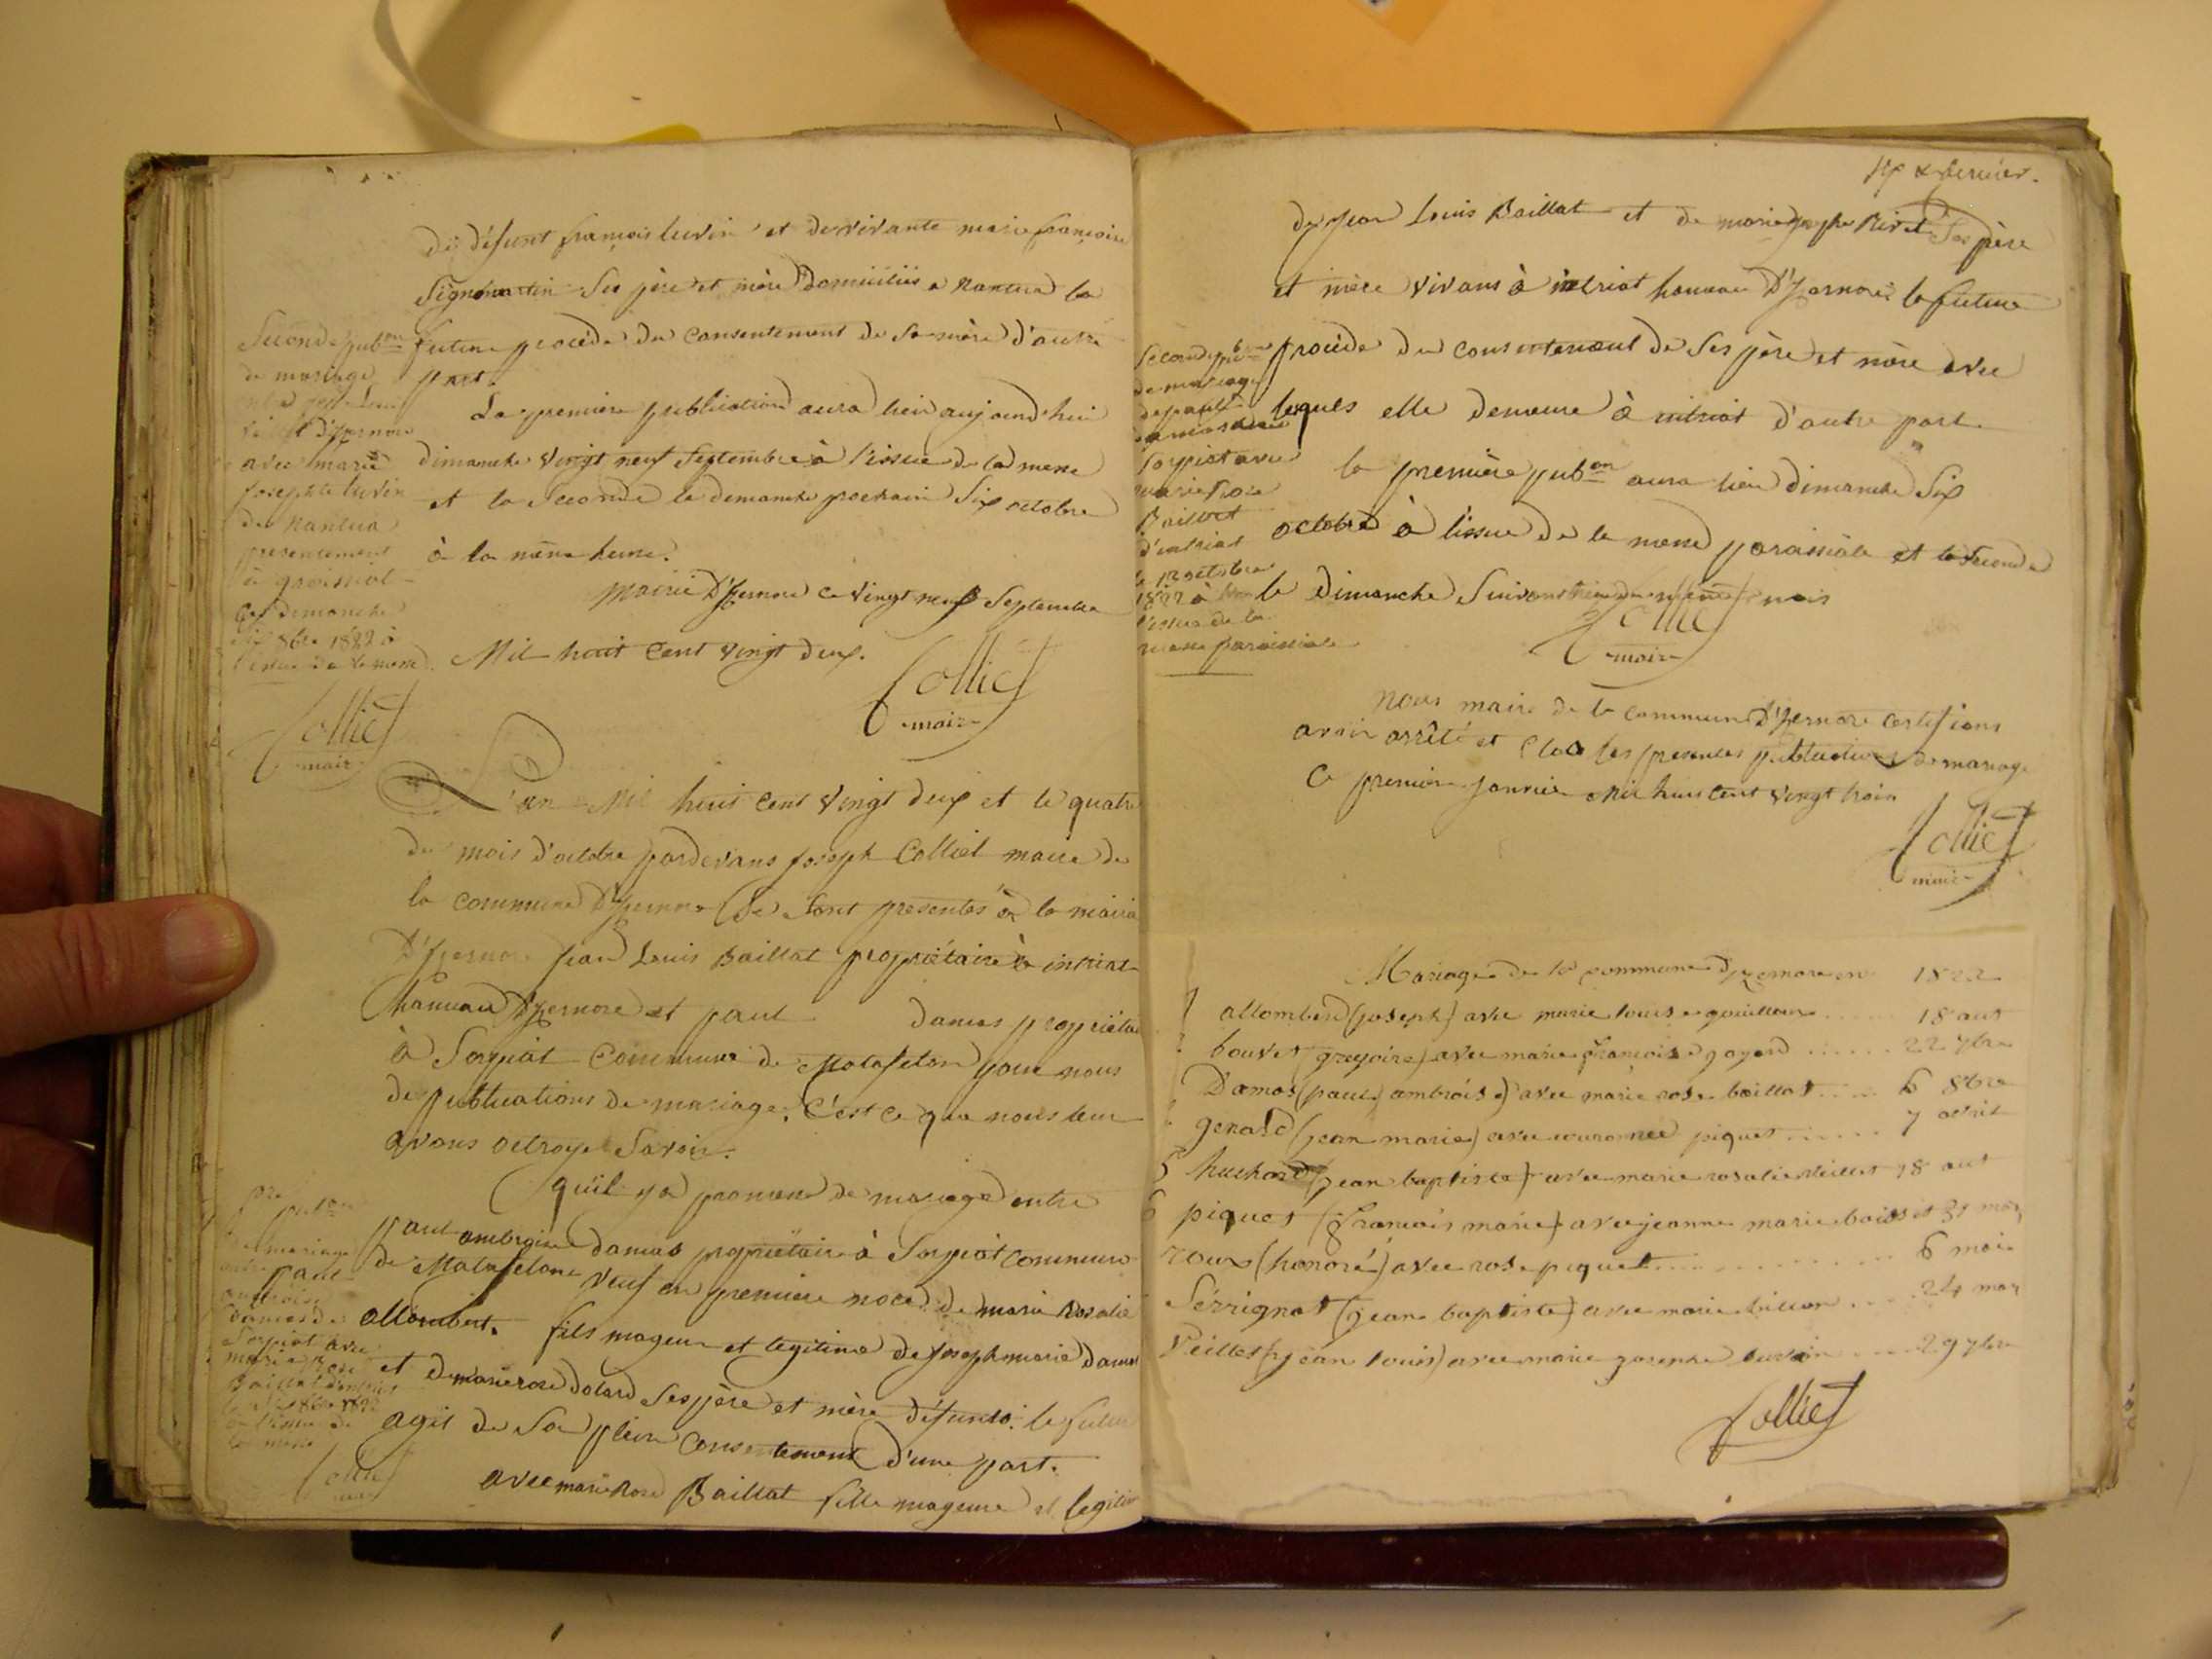 de défunt françois luvin et de vivante marie françoise
Signomartin Ses père et mère domiciliés a Nantua la
future procède du consentement de Sa mère d'autre
part.
La première publication aura lieu aujourd'hui
dimanche vingt neuf Septembre à l'issue de la messe
et la Seconde le dimanche prochain Six octobre
à la même heure.
Mairie D'Izernore ce vingt neuf Septembre
Mil huit Cent vingt deux.
Colliet
maire
Seconde pubon
de mariage
D'Izernore
avec marie
josephte luvin
de Nantua
presentement
à groissiat
ce dimanche
six 8bre 1822 à
l'issue de la messe
Colliet
maire
L'an Mil huit Cent vingt deux et le quatre
du mois d'octobre pardevans joseph Colliet maire de
la commune D'Izernore Se Sont presentés à la mairie
D'Izernore jean Louis Baillat propriétaire à intriat
hameau D'Izernore et paul damas propriétai
à Sorpiat Commune de Matafelon pour nous
de publications de mariage. C'est ce que nous leur
avons octroyé Savoir.
qu'il y a promesse de mariage entre
paul ambroise damas propriétaire à Sorpiat commune
de Matafelone veuf en premiere noce de marie Rosalie
allombert. fils mageur et legitime de joseph marie damas
et de marie rose dolard Ses père et mère défunts. le futur
agit de Son plein consentement d'une part.
avec marie Rose Baillat fille mageure et legitim
pre pubon
de mariage
entre paul
ambroise
damas de
Sorpiat avec
marie Rose
Baillat d'intriat
le six 8bre 1822
à l'issue de
la messe
Colliet
maire
14 & dernier.
de jean Louis Baillat et de marie josephe Rivet Ses père
et mère vivans à intriat hameau D'Izernore la future
procède du consentement de Ses père et mère avec
lequels elle demeure à intriat d'autre part.
la première pubon aura lieu dimanche Six
octobre à l'issue de la messe paroissiale et la Seconde
le dimanche Suivant treize du même mois
Colliet
maire
Seconde pubon
de mariage
de paul
damas de
Sorpiat avec
marie Rose
Baillat
d'intriat
le 13 octobre
1822 à
l'issue de la
messe paroissiale
Nous maire de la commune D'Izernore certifions
avoir arrêté et Clos les presentes publications de mariage
Ce premier janvier Mil huit Cent vingt trois
Colliet
maire
Mariages de la commune d'Izernore en 1822
allombert (joseph) avec marie louise gouilloux ..... 18 aut
bouvet (gregoire) avec marie françoise goyard ...... 22 7bre
Damas (paul ambroise) avec marie rose baillat ..... 6 8bre
genard (jean marie) avec couronnee piquet ...... 7 avril
5 huchard (jean baptiste) avec marie rosalie veillet 18 aut
6 piquet (françois marie) avec jeanne marie boisset 31 mar
roux (honoré) avec rose piquet ........ 6 mai
Sérrignat (jean baptiste) avec marie tullion .... 24 mar
Veillet (jean louis) avec marie josephe luvin .... 29 7bre
Colliet